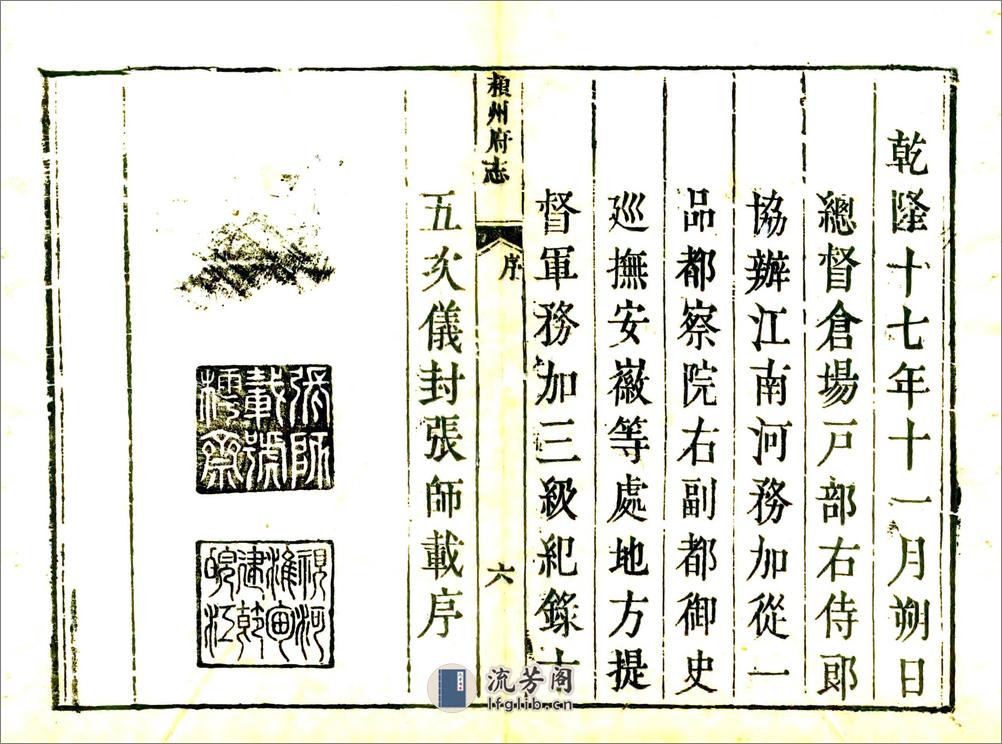 乾隆十七年十一月朔日
總督倉場戸部右侍郎
協辦江南河務加從一
品都察院右副都御史
廵撫安徽等處地方提
督軍務加三級紀錄十
頴州府志
序
六
五次儀封張師載序
張師
載號
齋
視河
皖江
流芳阁
lfglib.cn